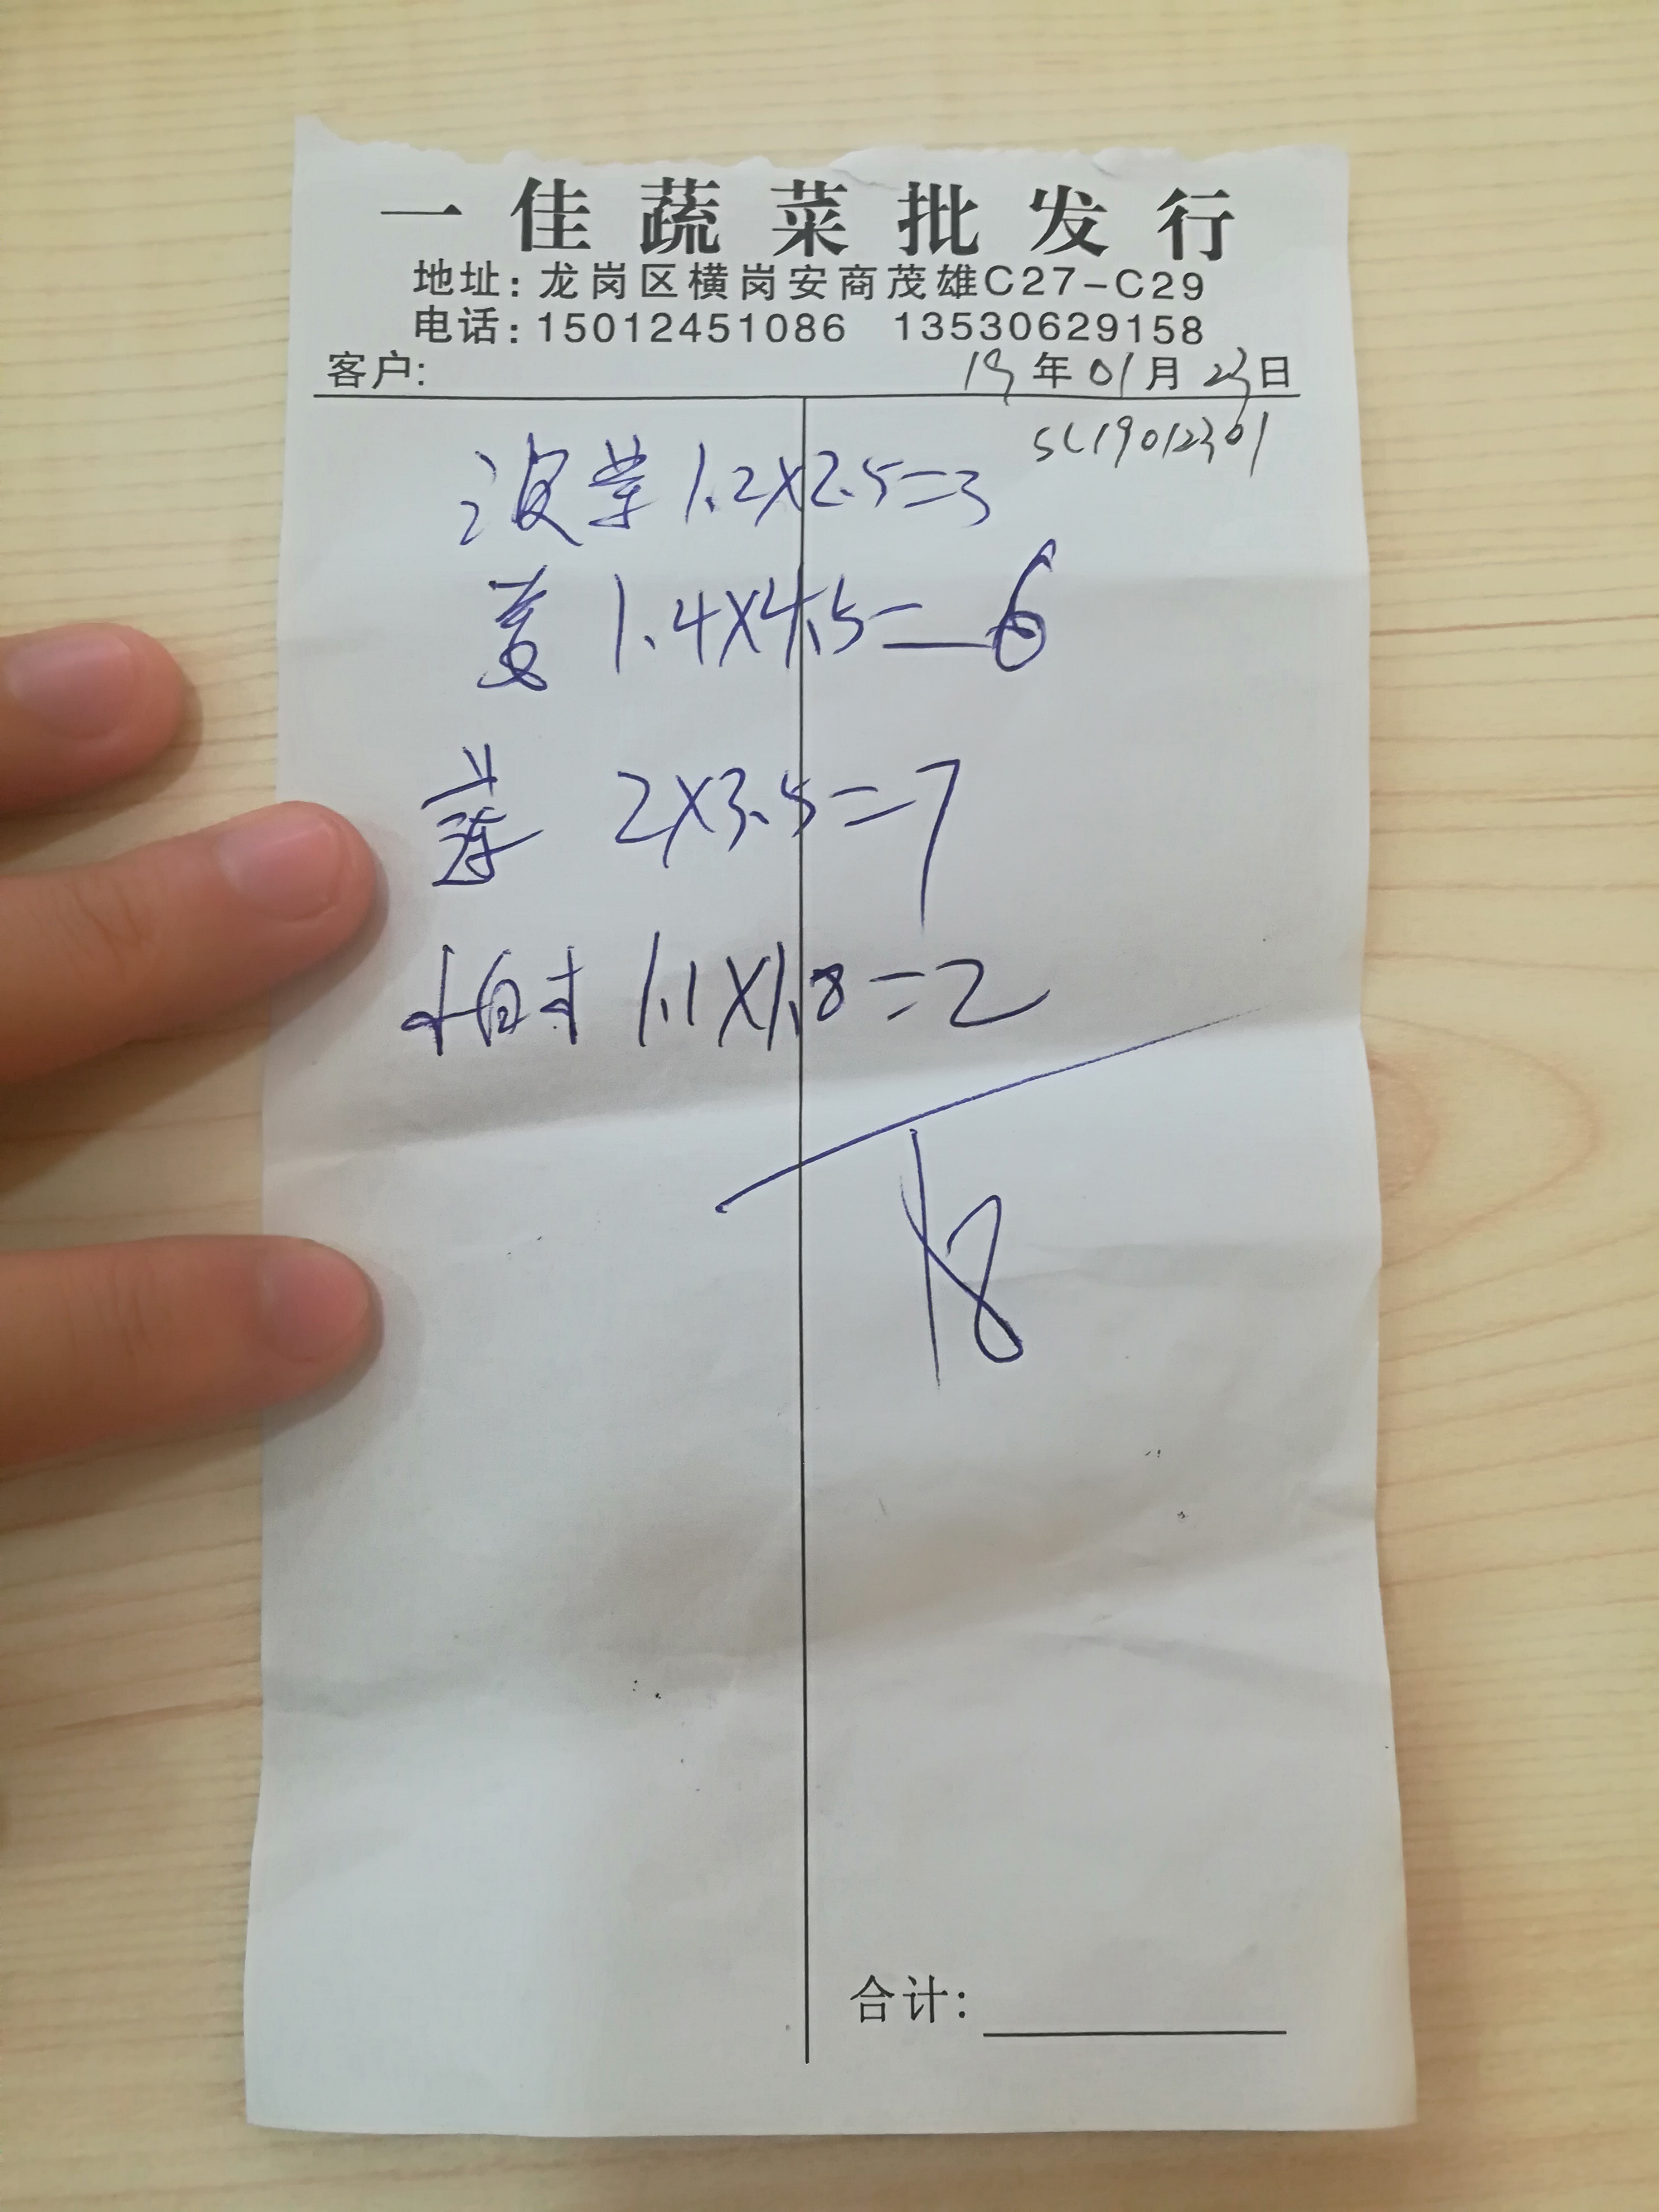 一佳蔬菜批发行
地址:龙岗区横岗安商茂雄C27-C29
电话:15012451086 13530629158
客户: 19年01月23日
SC19012301
波菜 1.2X2.5=3
姜 1.4X4.5=6
2X3.5=7
1.1X1.8=2
18
合计: